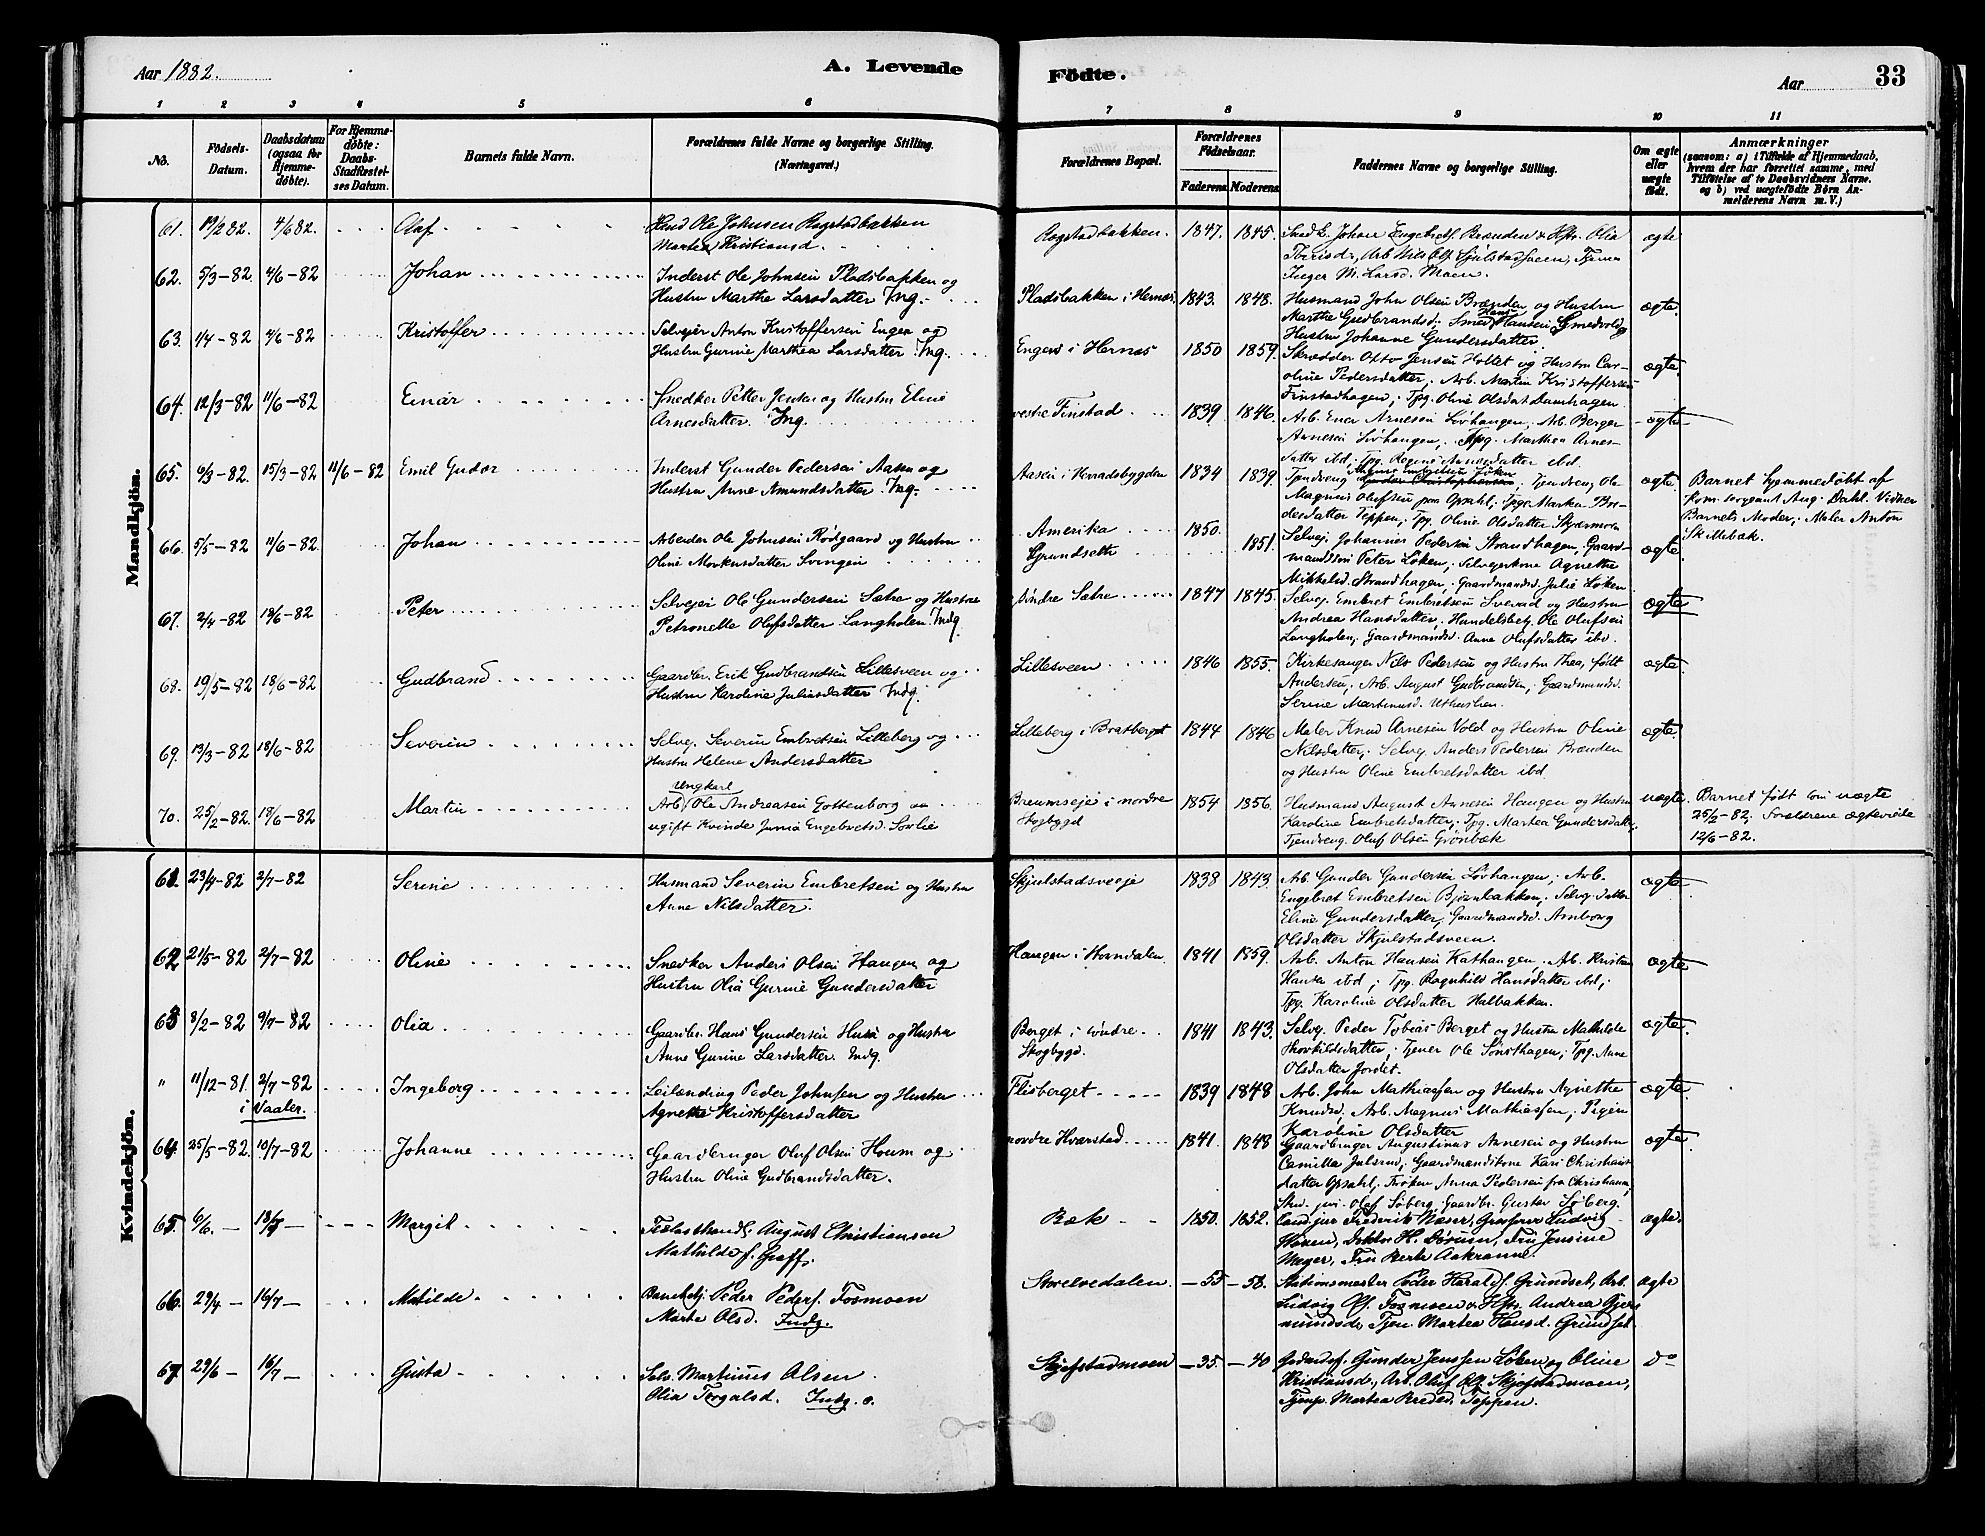 Aar 1882.
A. Levende
Födte.
Aar
33
1 2 3 4 5 6 7 8 9 10 11
No.
Födsels-
Datum.
Daabsdatum
(ogsaa for
Hjemme-
döbte).
For Hjemme-
döbte:
Daabs-
Stadfæstel-
ses Datum.
Barnets fulde Navn.
Forældrenes fulde Navne og borgerlige Stilling.
(Næringsvei.)
Forældrenes Bopæl.
Forældrenes
Födselsaar.
Faderens Moderens
Faddernes Navne og borgerlige Stilling.
Om ægte
eller
uægte
födt.
Anmærkninger
(saasom: a) i Tilfælde af Hjemmedaab,
hvem der har forrettet samme, med
Tilföielse af to Daabsvidners Navne,
og b) ved uægtefödte Börn An-
melderens Navn m.V.)
Mandkjön.
61. 19/2 82. 4/6 82. Olaf
Ole Johnsen Rogstadbakken
Marthea Kristiansd.
Rogstadbakken. 1847. 1845.
ægte
62. 5/3-82. 4/6-82 Johan
Inderst Ole Johnsen Pladsbakken og
Hustru Marthe Larsdatter Indg.
Pladsbakken i Hernæs. 1843. 1848.
Husmand John Olsen Brænden og Hustru
Marthe Gudbrandsd; Smed Hans Hansen Smedvold og
Hustru Johanne Gundersdatter.
ægte.
63. 1/4-82 4/6-82 Kristoffer
Selveier Anton Kristoffersen Engen og
Hustru Gurine Marthea Larsdatter. Indg.
Engen i Hernæs 1850 1859.
Skrædder Otto Jensen Holtet og Hustru Car-
oline Pedersdatter; Arb. Martin Kristoffersen
Finstadhagen; Tpg. Oline Olsdat. Damhagen
ægte.
64. 12/3-82 11/6-82 Einar
Snedker Petter Jensen og Hustru Eline
Arnesdatter. Indg.
vestre Finstad 1839 1846.
Arb. Ener Arnesen Lövhaugen; Arb. Berger
Arnesen Lövhaugen; Tpg. Marthea Arnes-
datter ibd. Tpg. Regine Arnesdatter ibd.
ægte
65. 9/3-82. 15/3-82 11/6-82 Emil Gudor
Inderst Gunder Pedersen Aasen og
Hustru Anne Amundsdatter Indg.
Aasen i Heradsbygden 1834 1839.
Tjendreng; Tjendreng Ole
Magnus Olufsen paa Opsahl; Tpge Marthea Bre-
desdatter Teppen; Tpg. Oline Olsdatter Skjærmoen
ægte.
Barnet hjemmedøbt af
Kom.sergeant Aug. Dahl. Vidner
Barnets Moder; Maler Anton
Skillebæk.
66. 5/5-82 11/6-82. Johan
Arbeider Ole Johnsen Rödgaard og Hustru
Oline Mortensdatter Svingen
Amerika 1850.
Grundseth 1851.
Selvej. Johannes Pedersen Strandhagen; Gaard-
mandssön Peter Løken; Selveierkone Agnethe
Mikkelsd. Strandhagen; Gaardmandsd. Julie Løken
ægte.
67. 2/4-82 18/6-82 Peter
Selveier Ole Gundersen Sætre og Hustru
Petronelle Olufsdatter Langholen. Indg.
söndre Sætre 1847 1845.
Selvej. Embret Embretsen Svevad og Hustru
Andrea Hansdatter; Handelsbetj. Ole Olufsen
Langholen; Gaardmandsd. Anne Olufsdatter ibd.
ægte
68. 19/5-82 18/6-82 Gudbrand
Gaardbr. Erik Gudbrandsen Lillesveen og
Hustru Karoline Juliusdatter Indg.
Lillesveen 1846 1855.
Kirkesanger Nils Pedersen og Hustru Thea, født
Andersen; Arb. August Gudbrandsen; Gaardmandsd.
Serine Martinusd. Uthuslien.
ægte
69. 13/3-82 18/6-82 Severin
Selvej. Severin Embretsen Lilleberg og
Hustru Helene Andersdatter
Lilleberg i Bratberget 1844 1846
Maler Knud Arnesen Vold og Hustru Oline
Nilsdatter; Selvej. Anders Pedersen Brænden
og Hustru Oline Embretsdatter ibd.
ægte.
70. 25/2-82. 18/6-82 Martin
Ungkarl
Arb. Ole Andreasen Gottenborg og
ugift Kvinde Junia Engebretsd. Sorlie
i nordre
Skogbygd 1854 1856.
Husmand August Arnesen Haugen og Hustru
Karoline Embretsdatter; Tpg. Marthea Gundersdatter
Tjendreng. Oluf Olsen Grönbæk
uægte.
Barnet født som uægte
25/2-82. Forældrene ægteviede
12/6-82.
Kvindekjön.
61. 23/4-82 2/7-82 Serine
Husmand Severin Embretsen og Hustru
Anne Nilsdatter.
Skjulstadsveeje 1838 1843.
Arb. Gunder Gundersen Lövhaugen; Arb.
Engebret Embretsen Björnbakken; Selvej.datter
Eline Gundersdatter; Gaardmandsd. Amborg
Olsdatter Skjulstadsveen.
ægte
62 21/5-82 2/7-82 Oline
Snedker Anders Olsen Haugen og
Hustru Olia Gurine Gundersdatter
Haugen i Horndalen. 1841 1859.
Arb. Anton Hansen Kathaugen. Arb. Kristian
Hansen ibd; Tpg. Ragnhild Hansdatter ibd;
Tpg. Karoline Olsdatter Halbakken.
ægte
63 8/2-82 9/7-82 Olia
Gaardbr. Hans Gundersen Husa og Hustru
Anne Gurine Larsdatter. Indg.
Berget i søndre
Skogbygd. 1841 1843.
Selvej. Peder Tobias Berget og Hustru Mathilde
Thorkildsdatter; Tjener Ole Sönsthagen; Tpg. Anne
Olsdatter Jordet.
ægte.
" 11/12-81. 2/7-82 Ingeborg
i Vaaler.
Leilending Peder Johnsen og Hustru
Agnethe Kristoffersdatter
Flisberget 1839 1848
Arb. John Mathiassen og Hustru Agnethe
Knudsd. Arb. Magnus Mathiassen; Pigen
Karoline Olsdatter
ægte
64. 25/5-82. 10/7-82 Johanne
Gaardbruger Oluf Olsen Houm og
Hustru Oline Gudbrandsdatter.
nordre Hvarstad 1841. 1848
Gaardbruger Augustinus Arnesen og Hustru
Camilla Julsrud; Gaardmandskone Kari Christians-
datter Opsahl; Frøken Anna Pedersen fra Christiania;
Stud. juri. Olaf Søberg; Gaardbr. Gustav Søberg.
ægte.
65. 6/6. - 13/7 - Margit
August Christiansen
Mathilde f. Graff.
Bæk 1850. 1852.
Cand. jur Frederik Næser, Grosserer Ludvig
Doktor H. Dørum, Fru Jensine
Meyer, Fru Berte Aakranne.
ægte.
66. 29/4 - 16/7 - Matilde
Banebetj. Peder Peders. Fosmoen
Marte Olsd. Indg.
Storelvedalen -55 -58.
Stationsmester Peder Haralds. Grundset, Arb.
Ludvig Ols. Fosmoen & Hstr. Andrea Gjer-
mundsd, Tjen. Martea Hansd. Grundset.
ægte
67 29/6 - 16/7 - Gusta
Selv. Martinus Olsen
Olia Torgalsd. Indg. o.
Skjefstadmoen -35. -40
Gunder Jenssen Løken og Oline
Kristiansd, Arb. Oluf Ols. Skjefstadmoen,
Tjenp. Martea Bredes. Teppen.
do